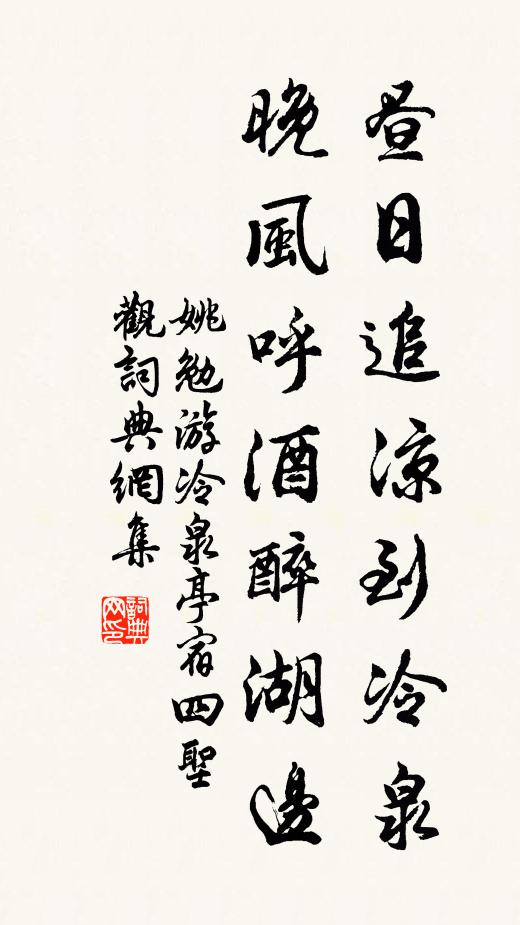 昼日追涼到冷泉
晚風呼酒醉湖邊
姚勉游冷泉亭宿四聖
觀詞典網集
詞典
网印